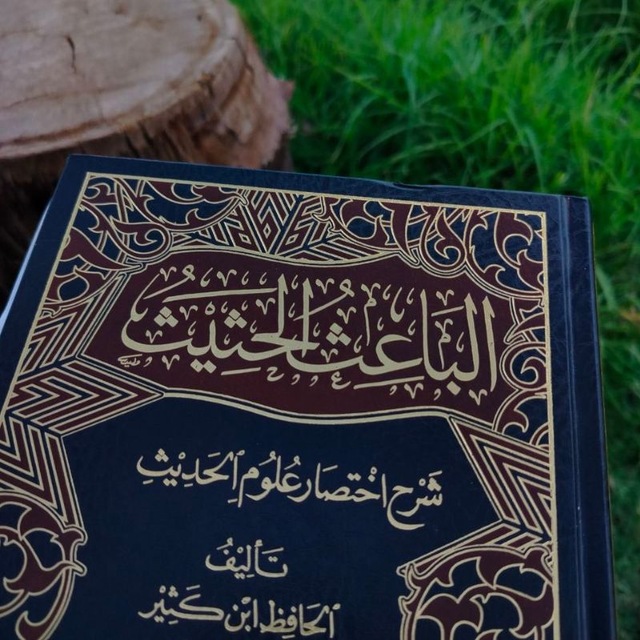 الباعث الحثيث
شَرْح اخْتصَار عُلُوم الحَدِيْثِ
تَأليْفُ
الحَافِظ ابْن كَثيْر